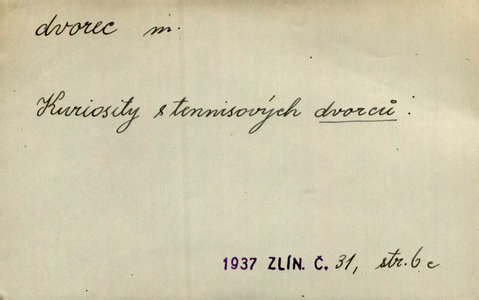 dvorec m.
Kuriosity s tennisových dvorců.
1937 ZLÍN. Č. 31, str. 6 c